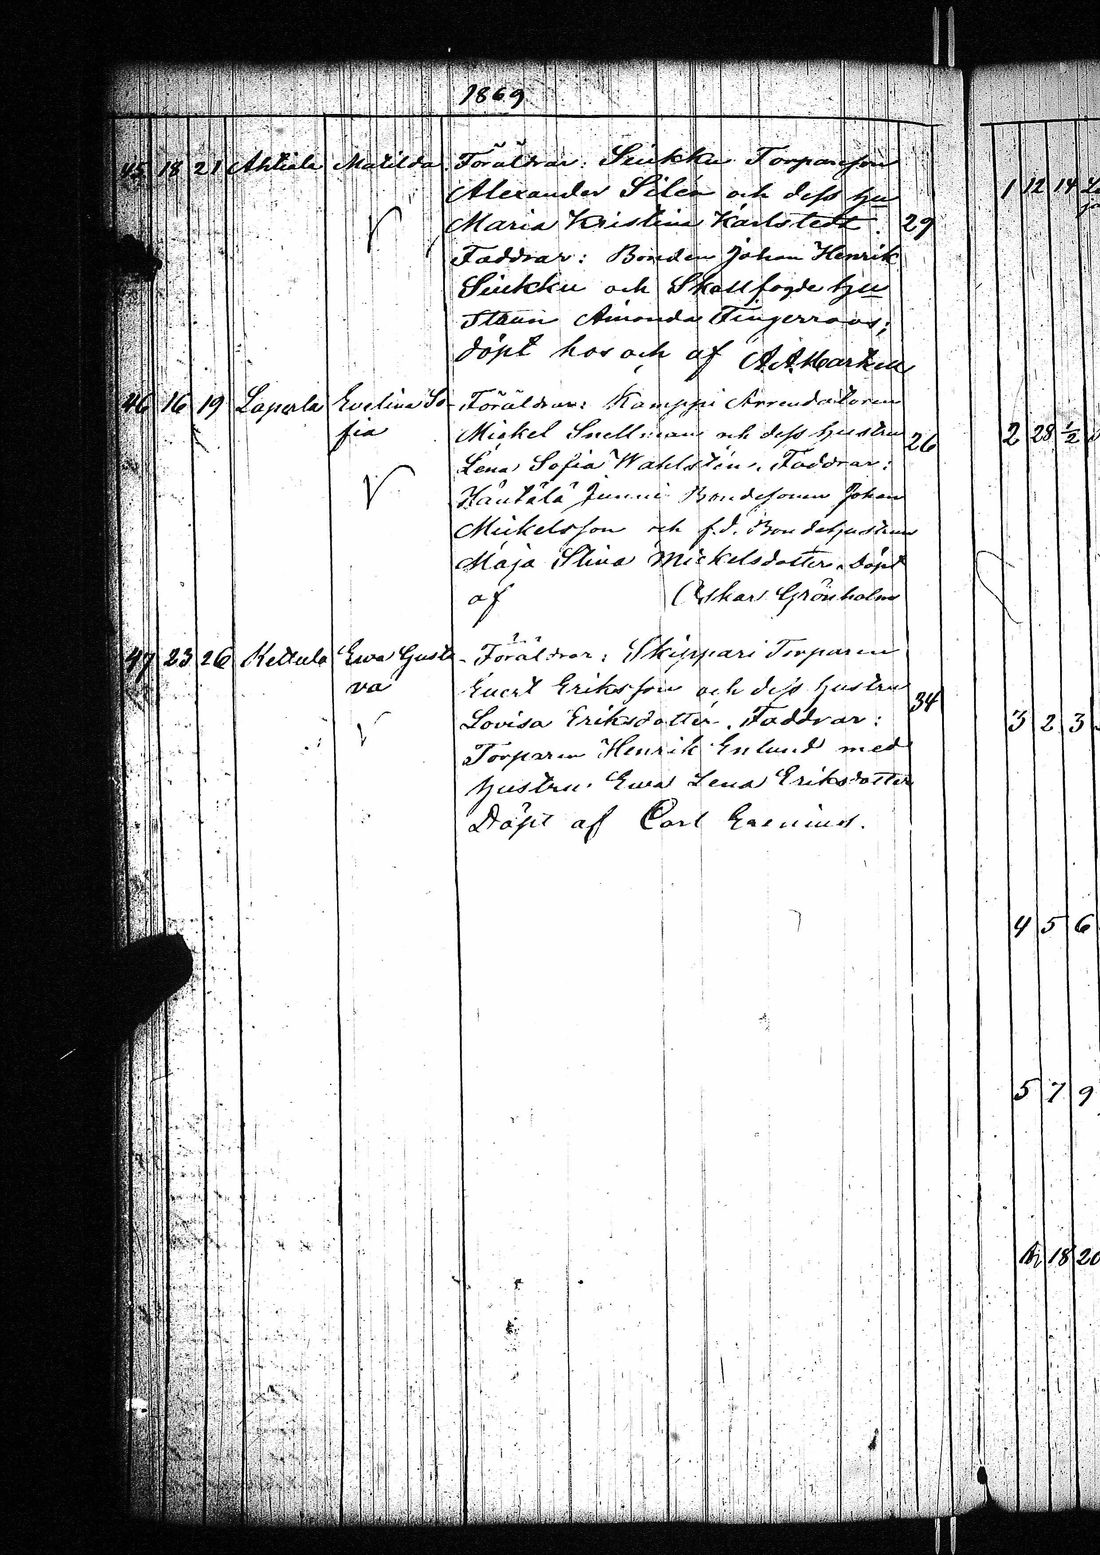 1869
45 18 21 Ahtiala Matilda Föräldrar: Siukku Torpareson
Alexander Silén och dess hu
Maria Kristina Karlstedt. 29
Faddrar: Bonden Johan Henrik
Siukku och Skallfogde hu
strun Amanda Fingerroos;
döpt hos och af A. A. Markell
46 16 19 Laperla Evelina So- Föräldrar: Kamppi Arrendatoren
fia Mickel Snellman och dess hustru 26
Lena Sofia Wahlstén. Faddrar:
Häntälä Junni Bondesonen Johan
Mickelsson och f.d. Bondehustrun
Maja Stina Mickelsdotter. Döpt
af Oskar Grönholm
47 23 26 Kettula Ewa Gusta- Föräldrar: Skippari Torparen
va Evert Eriksson och dess hustru 34
Lovisa Eriksdotter. Faddrar:
Torparen Henrik Enlund med
hustru Ewa Lena Eriksdotter
Döpt af Carl
1 12 14
2 28 1/2
3 2 3
4 5 6
5 7 9
18 20